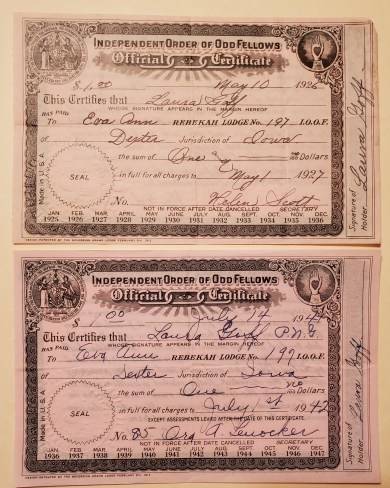 INDEPENDENT ORDER OF ODD FELLOWS
Official Certificate
$ 1.00 May 10 1926
This Certifies that Laura Goff
WHOSE SIGNATURE APPEARS IN THE MARGIN HEREOF
HAS PAID To Eva Ann REBEKAH LODGE No. 197 I.O.O.F.
of Dexter Jurisdiction of Iowa
the sum of One no Dollars
in full for all charges to May 1 1927
SEAL
No. Helen Scott
NOT IN FORCE AFTER DATE CANCELLED SECRETARY
Made in U.S.A.
JAN. FEB. MAR. APRIL MAY JUNE JULY AUG. SEPT. OCT. NOV. DEC.
1925 1926 1927 1928 1929 1930 1931 1932 1933 1934 1935 1936
Signature of Holder Laura Goff
INDEPENDENT ORDER OF ODD FELLOWS
Official Certificate
$ 00 July 14 1941
This Certifies that Laura Goff P.N.G.
WHOSE SIGNATURE APPEARS IN THE MARGIN HEREOF
HAS PAID To Eva Ann REBEKAH LODGE No. 197 I.O.O.F.
of Dexter Jurisdiction of Iowa
the sum of One no Dollars
in full for all charges to July 1st 1942
EXCEPT ASSESSMENTS LEVIED AFTER THE DATE OF THIS CERTIFICATE.
SEAL
No. Ora A.
NOT IN FORCE AFTER DATE CANCELLED SECRETARY
Made in U.S.A.
JAN. FEB. MAR. APRIL MAY JUNE JULY AUG. SEPT. OCT. NOV. DEC.
1936 1937 1938 1939 1940 1941 1942 1943 1944 1945 1946 1947
Signature of Holder Laura Goff